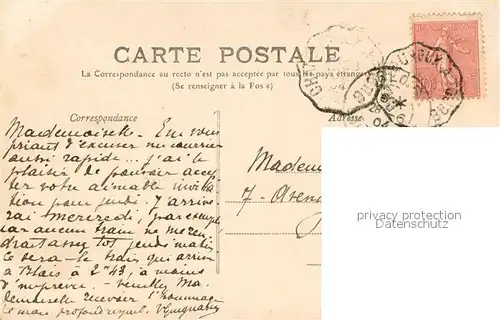 CARTE POSTALE
La Correspondance au recto n'est pas acceptée par tous les pays étrangers
(Se renseigner à la Poste)
Correspondance
Adresse
Mademoiselle - En vous
priant d'excuser ma courrier
aussi rapide... j'ai le
plaisir de pouvoir accep
ter votre aimable invita
tion pour jeudi. J'arrive
rai Mercredi, par exemple
car aucun train ne me ren
drait assez tôt jeudi matin.
Ce sera - le train qui arrive
à Blois à 2h 43, à moins
d'imprévu. - Veuillez Ma
demoiselle recevoir l'hommage
de mon profond respect.
Madem
7 - Avenu
privacy protection
Datenschutz